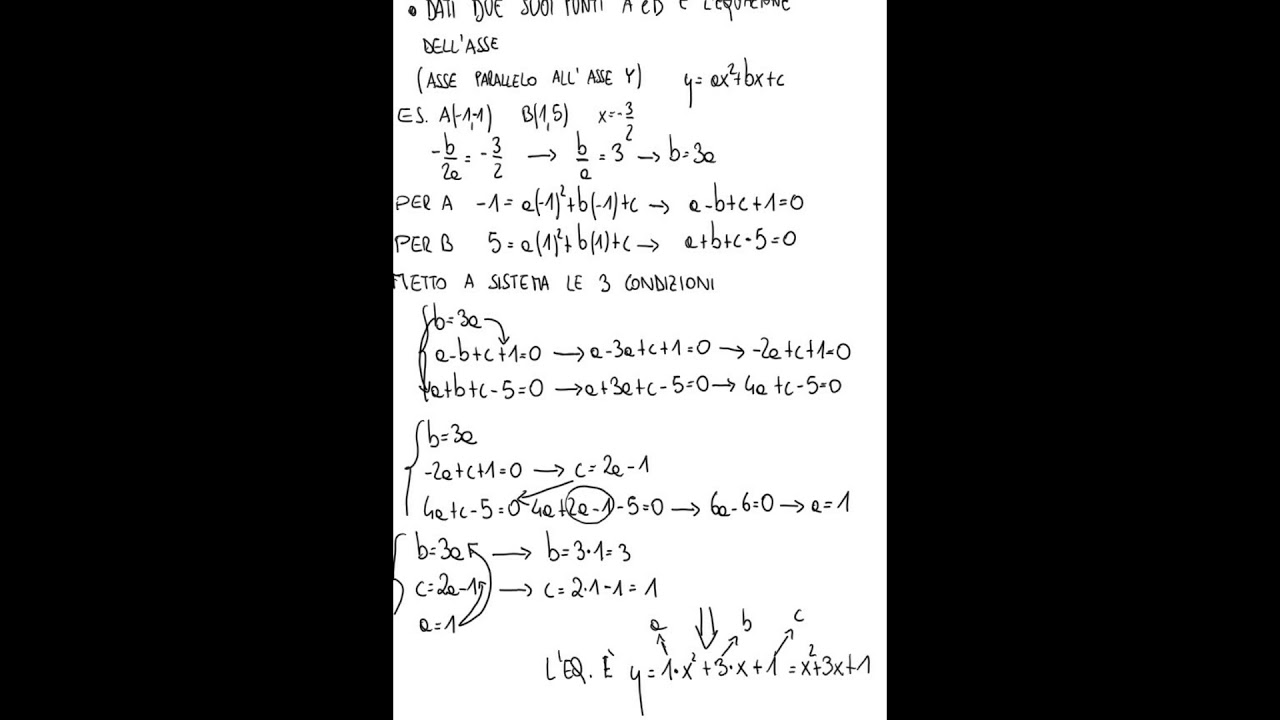 • DATI DUE SUOI PUNTI A e B E L'EQUAZIONE
DELL'ASSE
(ASSE PARALLELO ALL'ASSE Y) y=ax²+bx+c
ES. A(-1,-1) B(1,5) x=-3/2
-b/2a=-3/2 → b/a=3 → b=3a
PER A -1=a(-1)²+b(-1)+c → a-b+c+1=0
PER B 5=a(1)²+b(1)+c → a+b+c-5=0
METTO A SISTEMA LE 3 CONDIZIONI
b=3a
a-b+c+1=0 → a-3a+c+1=0 → -2a+c+1=0
a+b+c-5=0 → a+3a+c-5=0 → 4a+c-5=0
b=3a
-2a+c+1=0 → c=2a-1
4a+c-5=0 4a+2a-1-5=0 → 6a-6=0 → a=1
b=3a → b=3·1=3
c=2a-1 → c=2·1-1=1
a=1
a b c
L'EQ. È y=1·x²+3·x+1=x²+3x+1